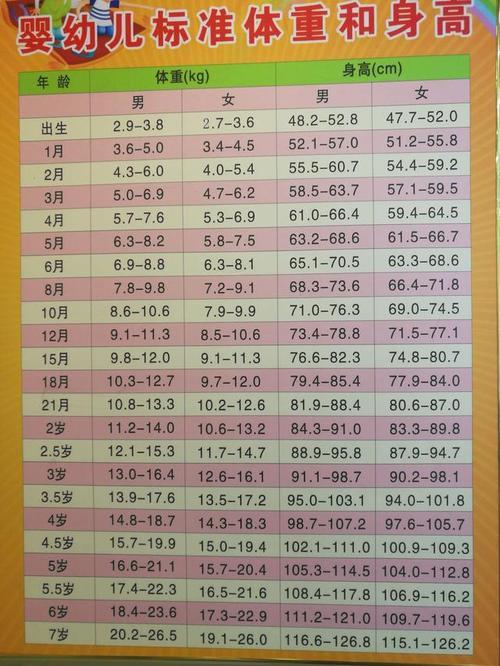 婴幼儿标准体重和身高
年龄 体重(kg) 身高(cm)
男 女 男 女
出生 2.9-3.8 2.7-3.6 48.2-52.8 47.7-52.0
1月 3.6-5.0 3.4-4.5 52.1-57.0 51.2-55.8
2月 4.3-6.0 4.0-5.4 55.5-60.7 54.4-59.2
3月 5.0-6.9 4.7-6.2 58.5-63.7 57.1-59.5
4月 5.7-7.6 5.3-6.9 61.0-66.4 59.4-64.5
5月 6.3-8.2 5.8-7.5 63.2-68.6 61.5-66.7
6月 6.9-8.8 6.3-8.1 65.1-70.5 63.3-68.6
8月 7.8-9.8 7.2-9.1 68.3-73.6 66.4-71.8
10月 8.6-10.6 7.9-9.9 71.0-76.3 69.0-74.5
12月 9.1-11.3 8.5-10.6 73.4-78.8 71.5-77.1
15月 9.8-12.0 9.1-11.3 76.6-82.3 74.8-80.7
18月 10.3-12.7 9.7-12.0 79.4-85.4 77.9-84.0
21月 10.8-13.3 10.2-12.6 81.9-88.4 80.6-87.0
2岁 11.2-14.0 10.6-13.2 84.3-91.0 83.3-89.8
2.5岁 12.1-15.3 11.7-14.7 88.9-95.8 87.9-94.7
3岁 13.0-16.4 12.6-16.1 91.1-98.7 90.2-98.1
3.5岁 13.9-17.6 13.5-17.2 95.0-103.1 94.0-101.8
4岁 14.8-18.7 14.3-18.3 98.7-107.2 97.6-105.7
4.5岁 15.7-19.9 15.0-19.4 102.1-111.0 100.9-109.3
5岁 16.6-21.1 15.7-20.4 105.3-114.5 104.0-112.8
5.5岁 17.4-22.3 16.5-21.6 108.4-117.8 106.9-116.2
6岁 18.4-23.6 17.3-22.9 111.2-121.0 109.7-119.6
7岁 20.2-26.5 19.1-26.0 116.6-126.8 115.1-126.2